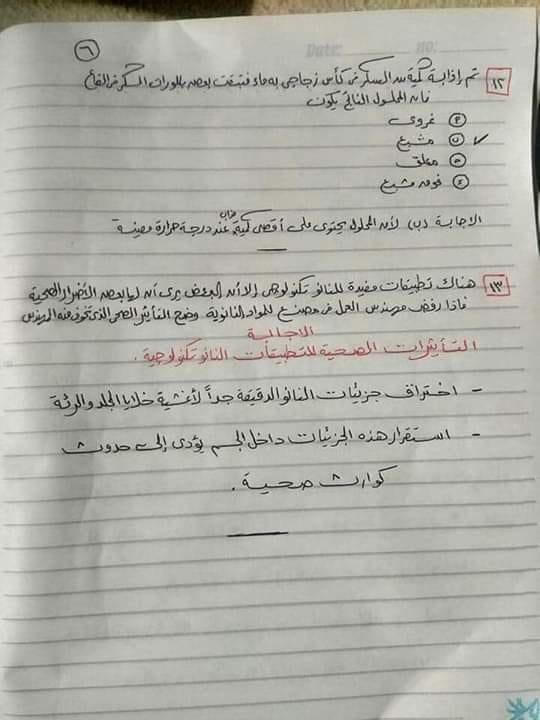 ٦
Date: No:
١٢ تم إذابة كمية من السكر فى كأس زجاجى به ماء فتبقت بعض بللورات السكر فى القاع
فإن المحلول الناتج يكون
أ غروى
ب مشبع ✓
ج معلق
د فوق مشبع
الاجابة (ب) لأن المحلول يحتوى على أقصى كمية مذاب عند درجة حرارة معينة
١٣ هناك تطبيقات مفيدة للنانو تكنولوجى إلا أن البعض يرى أن لها بعض الأضرار الصحية
فإذا رفض مهندس العمل فى مصنع للمواد النانوية. وضح التأثير الصحى الذى تخوف منه المهندس
الاجابة
التأثيرات الصحية للتطبيقات النانو تكنولوجية.
- اختراق جزئيات النانو الدقيقة جداً لأغشية خلايا الجلد والرئة
- استقرار هذه الجزئيات داخل الجسم يؤدى إلى حدوث
كوارث صحية.